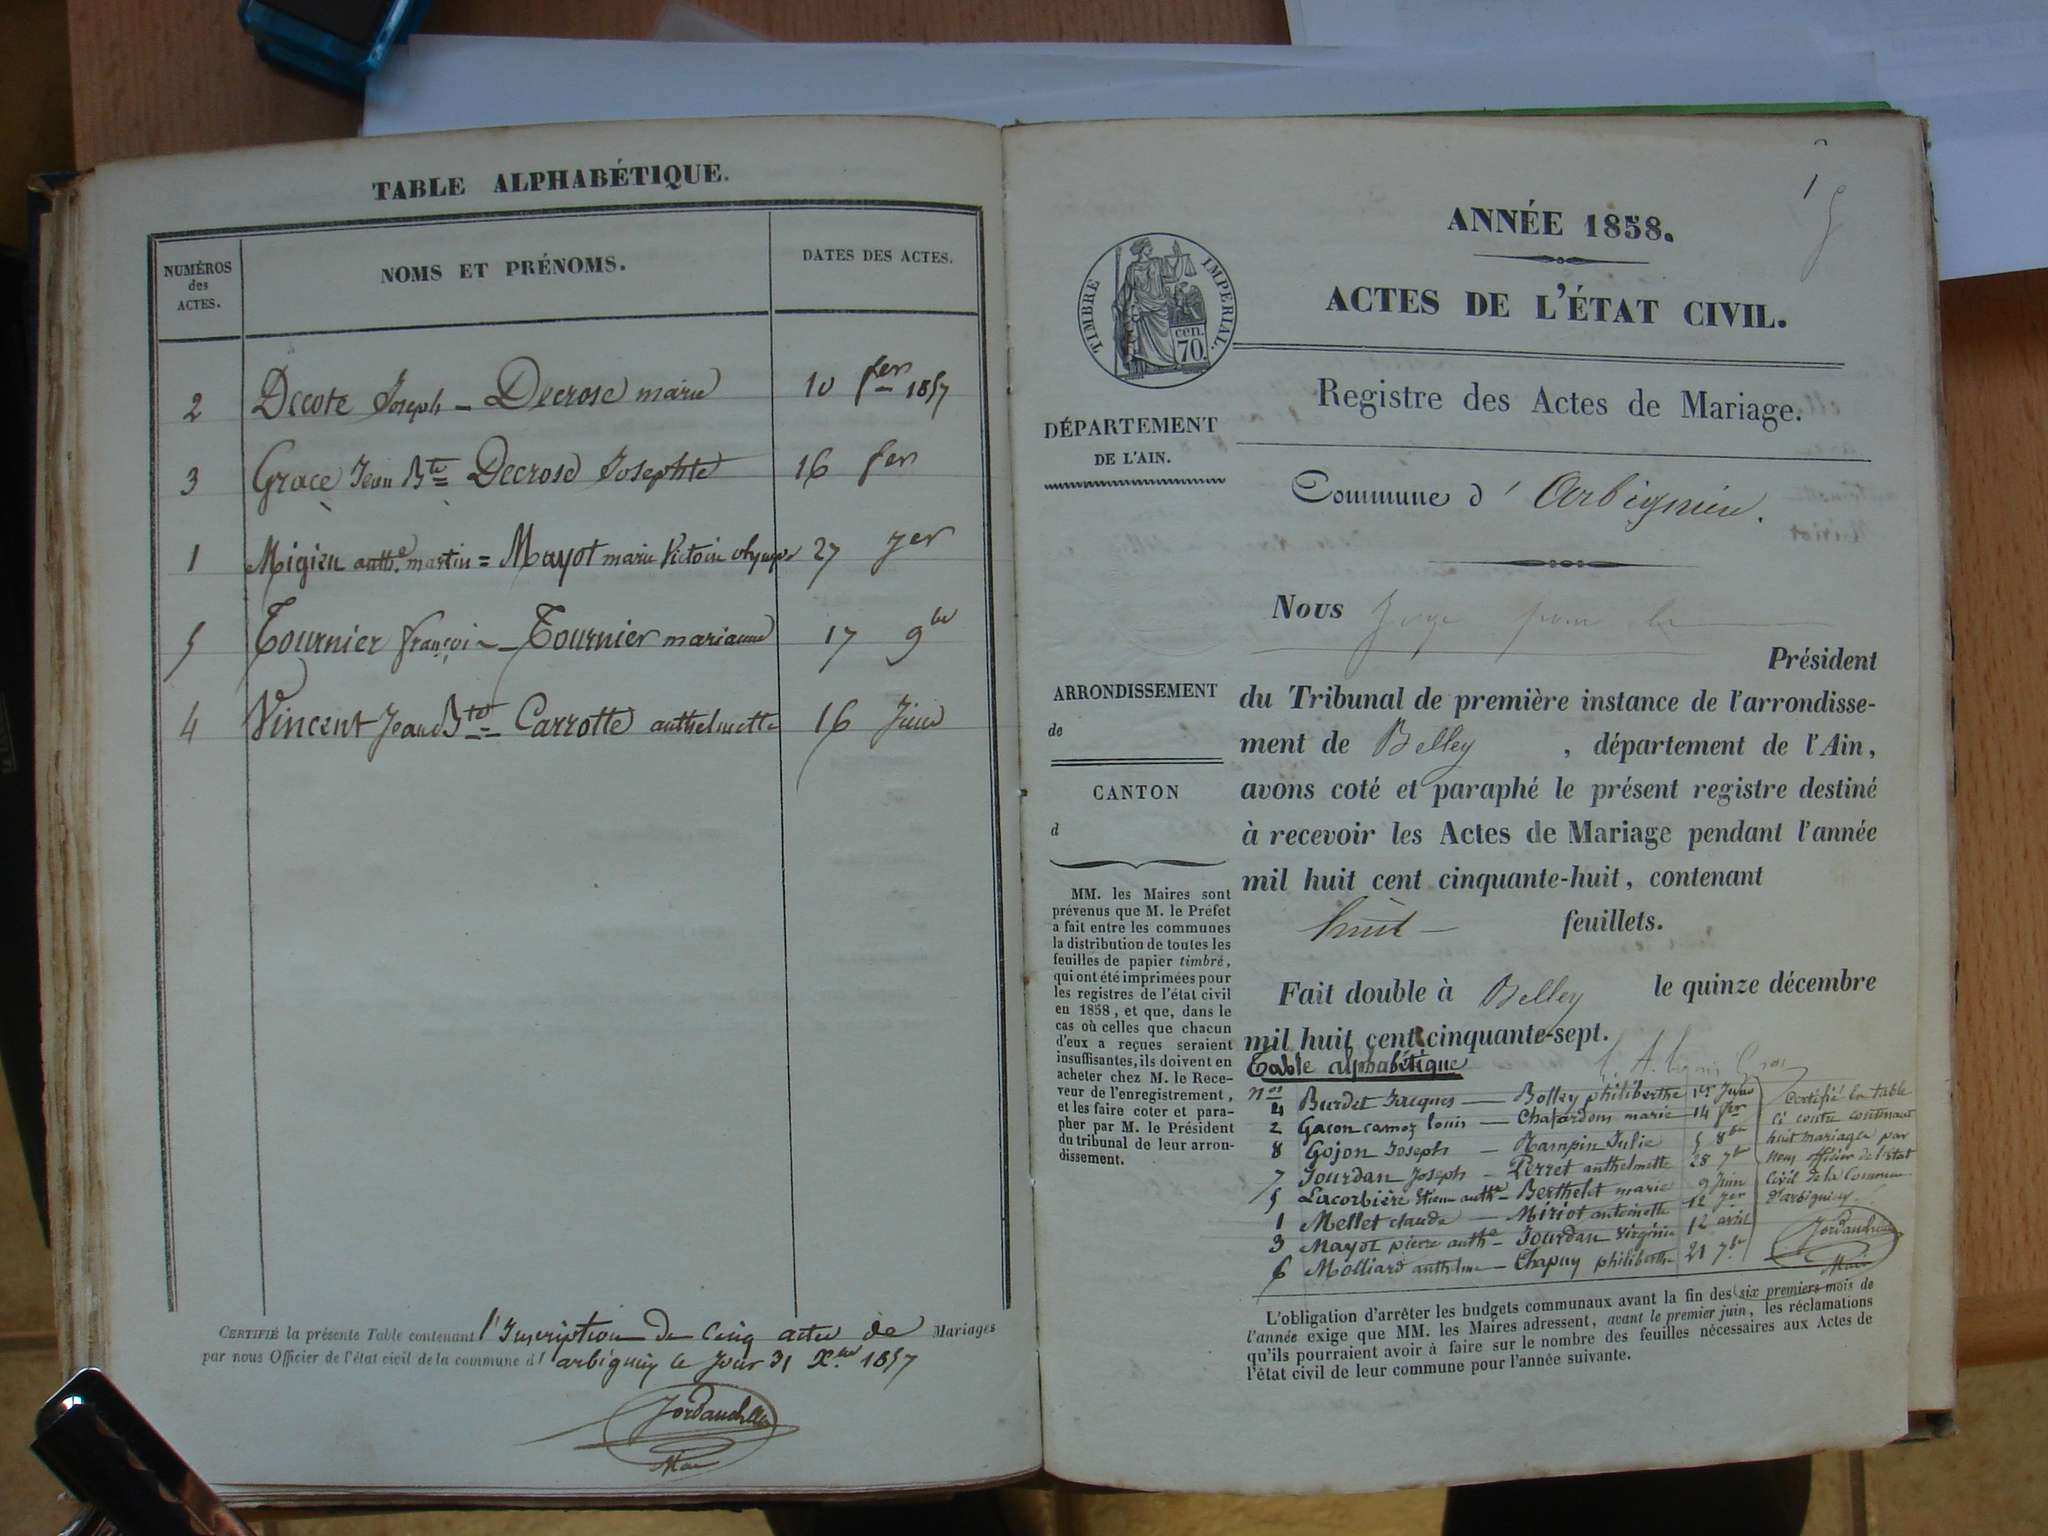 TABLE ALPHABÉTIQUE.
NUMÉROS
des
ACTES.
NOMS ET PRÉNOMS.
DATES DES ACTES.
2 Decote Joseph - Decrose marie 10 fer 1857
3 Grace Jean Bte = Decrose Josephte 16 fer
1 Migieu anthe. martin = Mayot marie Victoire olympe 27 jer
5 Tournier françois - Tournier marianne 17 9bre
4 Vincent Jean Bte = Carrotte anthelmette 16 Juin
CERTIFIÉ la présente Table contenant l'Inscription de Cinq actes de Mariages
par nous Officier de l'état civil de la commune d' arbignieu ce Jour 31 Xbre 1857
Maire
1
ANNÉE 1858.
ACTES DE L'ÉTAT CIVIL.
TIMBRE IMPÉRIAL.
cen.
70.
Registre des Actes de Mariage.
DÉPARTEMENT
DE L'AIN.
Commune d' Arbignieu.
Nous Juge pour le
Président
ARRONDISSEMENT
de
du Tribunal de première instance de l'arrondisse-
ment de Belley , département de l'Ain,
CANTON
d
avons coté et paraphé le présent registre destiné
à recevoir les Actes de Mariage pendant l'année
mil huit cent cinquante-huit, contenant
huit - feuillets.
MM. les Maires sont
prévenus que M. le Préfet
a fait entre les communes
la distribution de toutes les
feuilles de papier timbré,
qui ont été imprimées pour
les registres de l'état civil
en 1858, et que, dans le
cas où celles que chacun
d'eux a reçues seraient
insuffisantes, ils doivent en
acheter chez M. le Rece-
veur de l'enregistrement,
et les faire coter et para-
pher par M. le Président
du tribunal de leur arron-
dissement.
Fait double à Belley le quinze décembre
mil huit cent cinquante-sept.
Table alphabétique
nos
4 Burdet Jacques - Bolley philiberthe 1er Juin
2 Gacon camoz louis - Chafardon marie 14 fer
8 Gojon Joseph - Hampin Julie 5 8bre
7 Jourdan Joseph - Perret anthelmette 28 7bre
5 Lacorbière Etienne anthe - Berthelet marie 9 Juin
1 Mellet claude - Miriot antoinette 12 jer
3 Mayot pierre anthe - Jourdan Virginie 12 avril
6 Molliard anthelme - Chapuy philiberthe 21 7bre
Certifié la table
ci contre contenant
huit mariages par
nous officier de l'état
civil de la Commune
d'arbignieu.
Maire
L'obligation d'arrêter les budgets communaux avant la fin des six premiers mois de
l'année exige que MM. les Maires adressent, avant le premier juin, les réclamations
qu'ils pourraient avoir à faire sur le nombre des feuilles nécessaires aux Actes de
l'état civil de leur commune pour l'année suivante.